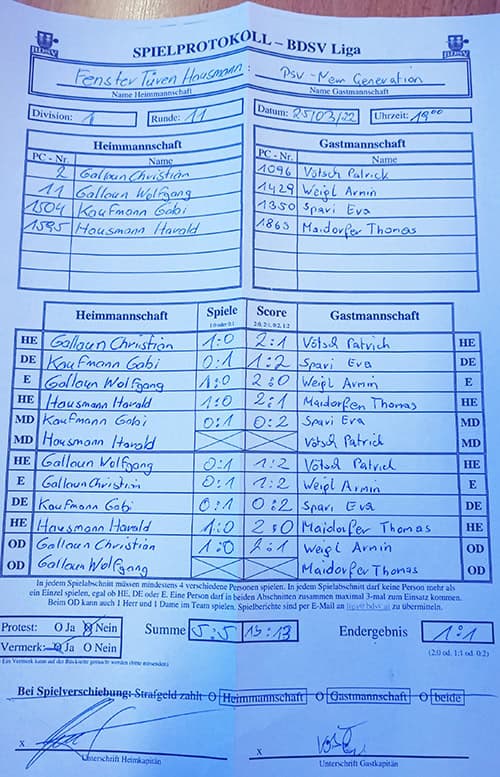 SPIELPROTOKOLL – BDSV Liga
BDSV BDSV
Fenster Türen Hausmann : PSV - New Generation
Name Heimmannschaft Name Gastmannschaft
Division: 1 Runde: 11 Datum: 25/03/22 Uhrzeit: 19°°
Heimmannschaft Gastmannschaft
PC - Nr. Name PC - Nr. Name
2 Gallaun Christian 1096 Vötsch Patrick
11 Gallaun Wolfgang 1429 Weigl Armin
1504 Kaufmann Gabi 1350 Spari Eva
1595 Hausmann Harald 1863 Maidorfer Thomas
Heimmannschaft Spiele Score Gastmannschaft
1:0 oder 0:1 2:0, 2:1, 0:2, 1:2
HE Gallaun Christian 1:0 2:1 Vötsch Patrich HE
DE Kaufmann Gabi 0:1 1:2 Spari Eva DE
E Gallaun Wolfgang 1:0 2:0 Weigl Armin E
HE Hausmann Harald 1:0 2:1 Maidorfer Thomas HE
MD Kaufmann Gabi 0:1 0:2 Spari Eva MD
MD Hausmann Harald Vötsch Patrich MD
HE Gallaun Wolfgang 0:1 1:2 Vötsch Patrich HE
E Gallaun Christian 0:1 1:2 Weigl Armin E
DE Kaufmann Gabi 0:1 0:2 Spari Eva DE
HE Hausmann Harald 1:0 2:0 Maidorfer Thomas HE
OD Gallaun Christian 1:0 2:1 Weigl Armin OD
OD Gallaun Wolfgang Maidorfer Thomas OD
In jedem Spielabschnitt müssen mindestens 4 verschiedene Personen spielen. In jedem Spielabschnitt darf keine Person mehr als
ein Einzel spielen, egal ob HE, DE oder E. Eine Person darf in beiden Abschnitten zusammen maximal 3-mal zum Einsatz kommen.
Beim OD kann auch 1 Herr und 1 Dame im Team spielen. Spielberichte sind per E-Mail an liga@bdsv.at zu übermitteln.
Protest: O Ja O Nein Summe 5:5 13:13 Endergebnis 1:1
Vermerk: O Ja O Nein (2:0 od. 1:1 od. 0:2)
Ein Vermerk kann auf der Rückseite gemacht werden
Bei Spielverschiebung: Strafgeld zahlt O Heimmannschaft O Gastmannschaft O beide
x x
Unterschrift Heimkapitän Unterschrift Gastkapitän